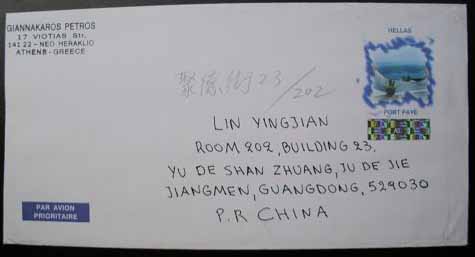 GIANNAKAROS PETROS
17 VIOTIAS Str,
14122 - NEO HERAKLIO
ATHENS - GREECE
HELLAS
PORT PAYE
聚德街23/202
LIN YINGJIAN
ROOM 202, BUILDING 23,
YU DE SHAN ZHUANG, JU DE JIE
JIANGMEN, GUANGDONG, 529030
P.R CHINA
PAR AVION
PRIORITAIRE